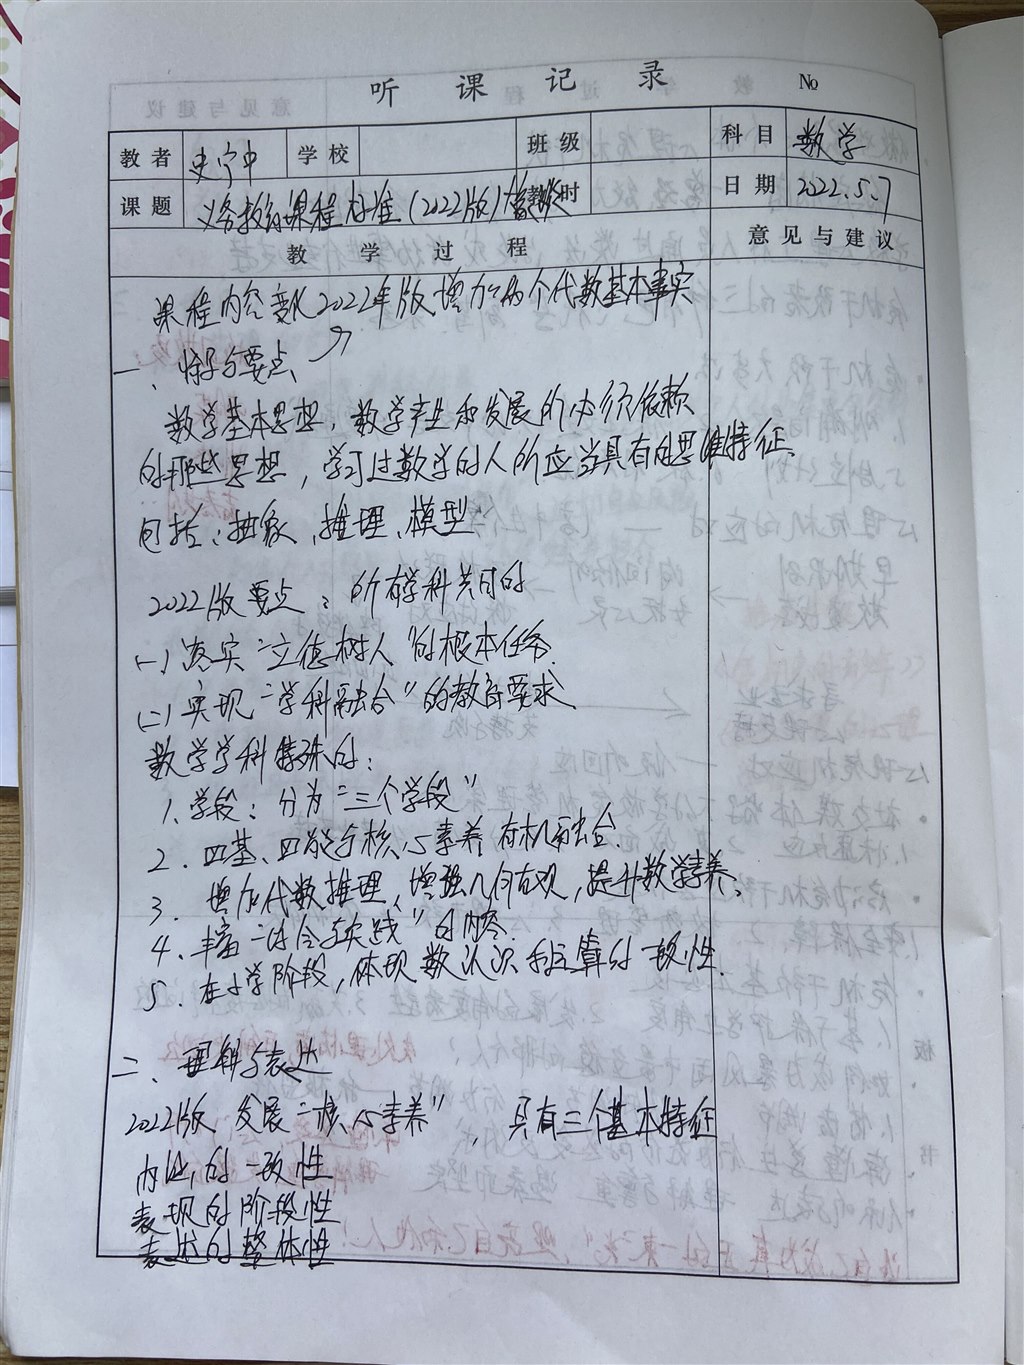 听课记录 №
教者 史宁中 学校 班级 科目 数学
课题 义务教育课程标准(2022版) 课时 日期 2022.5.7
教学过程 意见与建议
课程内容 2022年版增加的个代数基本事实
一、修订与要点
数学基本思想,数学产生和发展所必须依赖
的那些思想,学习过数学的人所应当具有的思维特征.
包括:抽象、推理、模型
2022版要点:所有学科共同的
(一)落实“立德树人”的根本任务.
(二)实现“学科融合”的教育要求
数学学科特殊的:
1.学段:分为“三个学段”
2.四基、四能与核心素养有机融合.
3.增加代数推理,增强几何直观,提升数学素养.
4.丰富“综合与实践”的内容.
5.在小学阶段,体现数认识和运算的一致性.
二、理解与表达
2022版 发展“核心素养”,具有三个基本特征
内涵的一致性
表现的阶段性
表述的整体性